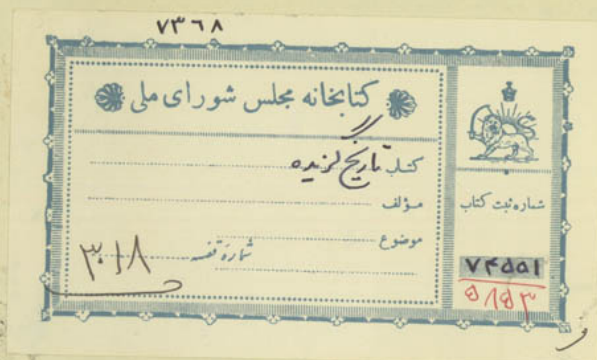 ۷۳۶۸
کتابخانه مجلس شورای ملی
کتاب تاریخ گزیده
مؤلف
موضوع
شمارهٔ قفسه
۳۰۱۸
شماره ثبت کتاب
۷۴۵۵۱
۵۱۵۳